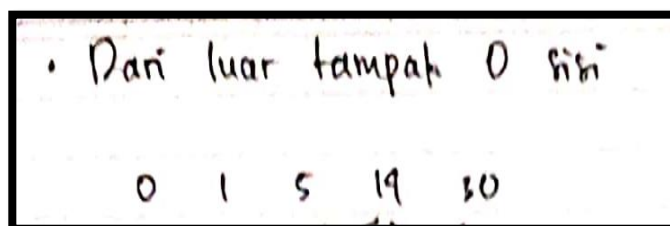 • Dari luar tampak 0 sisi
0 1 5 14 30